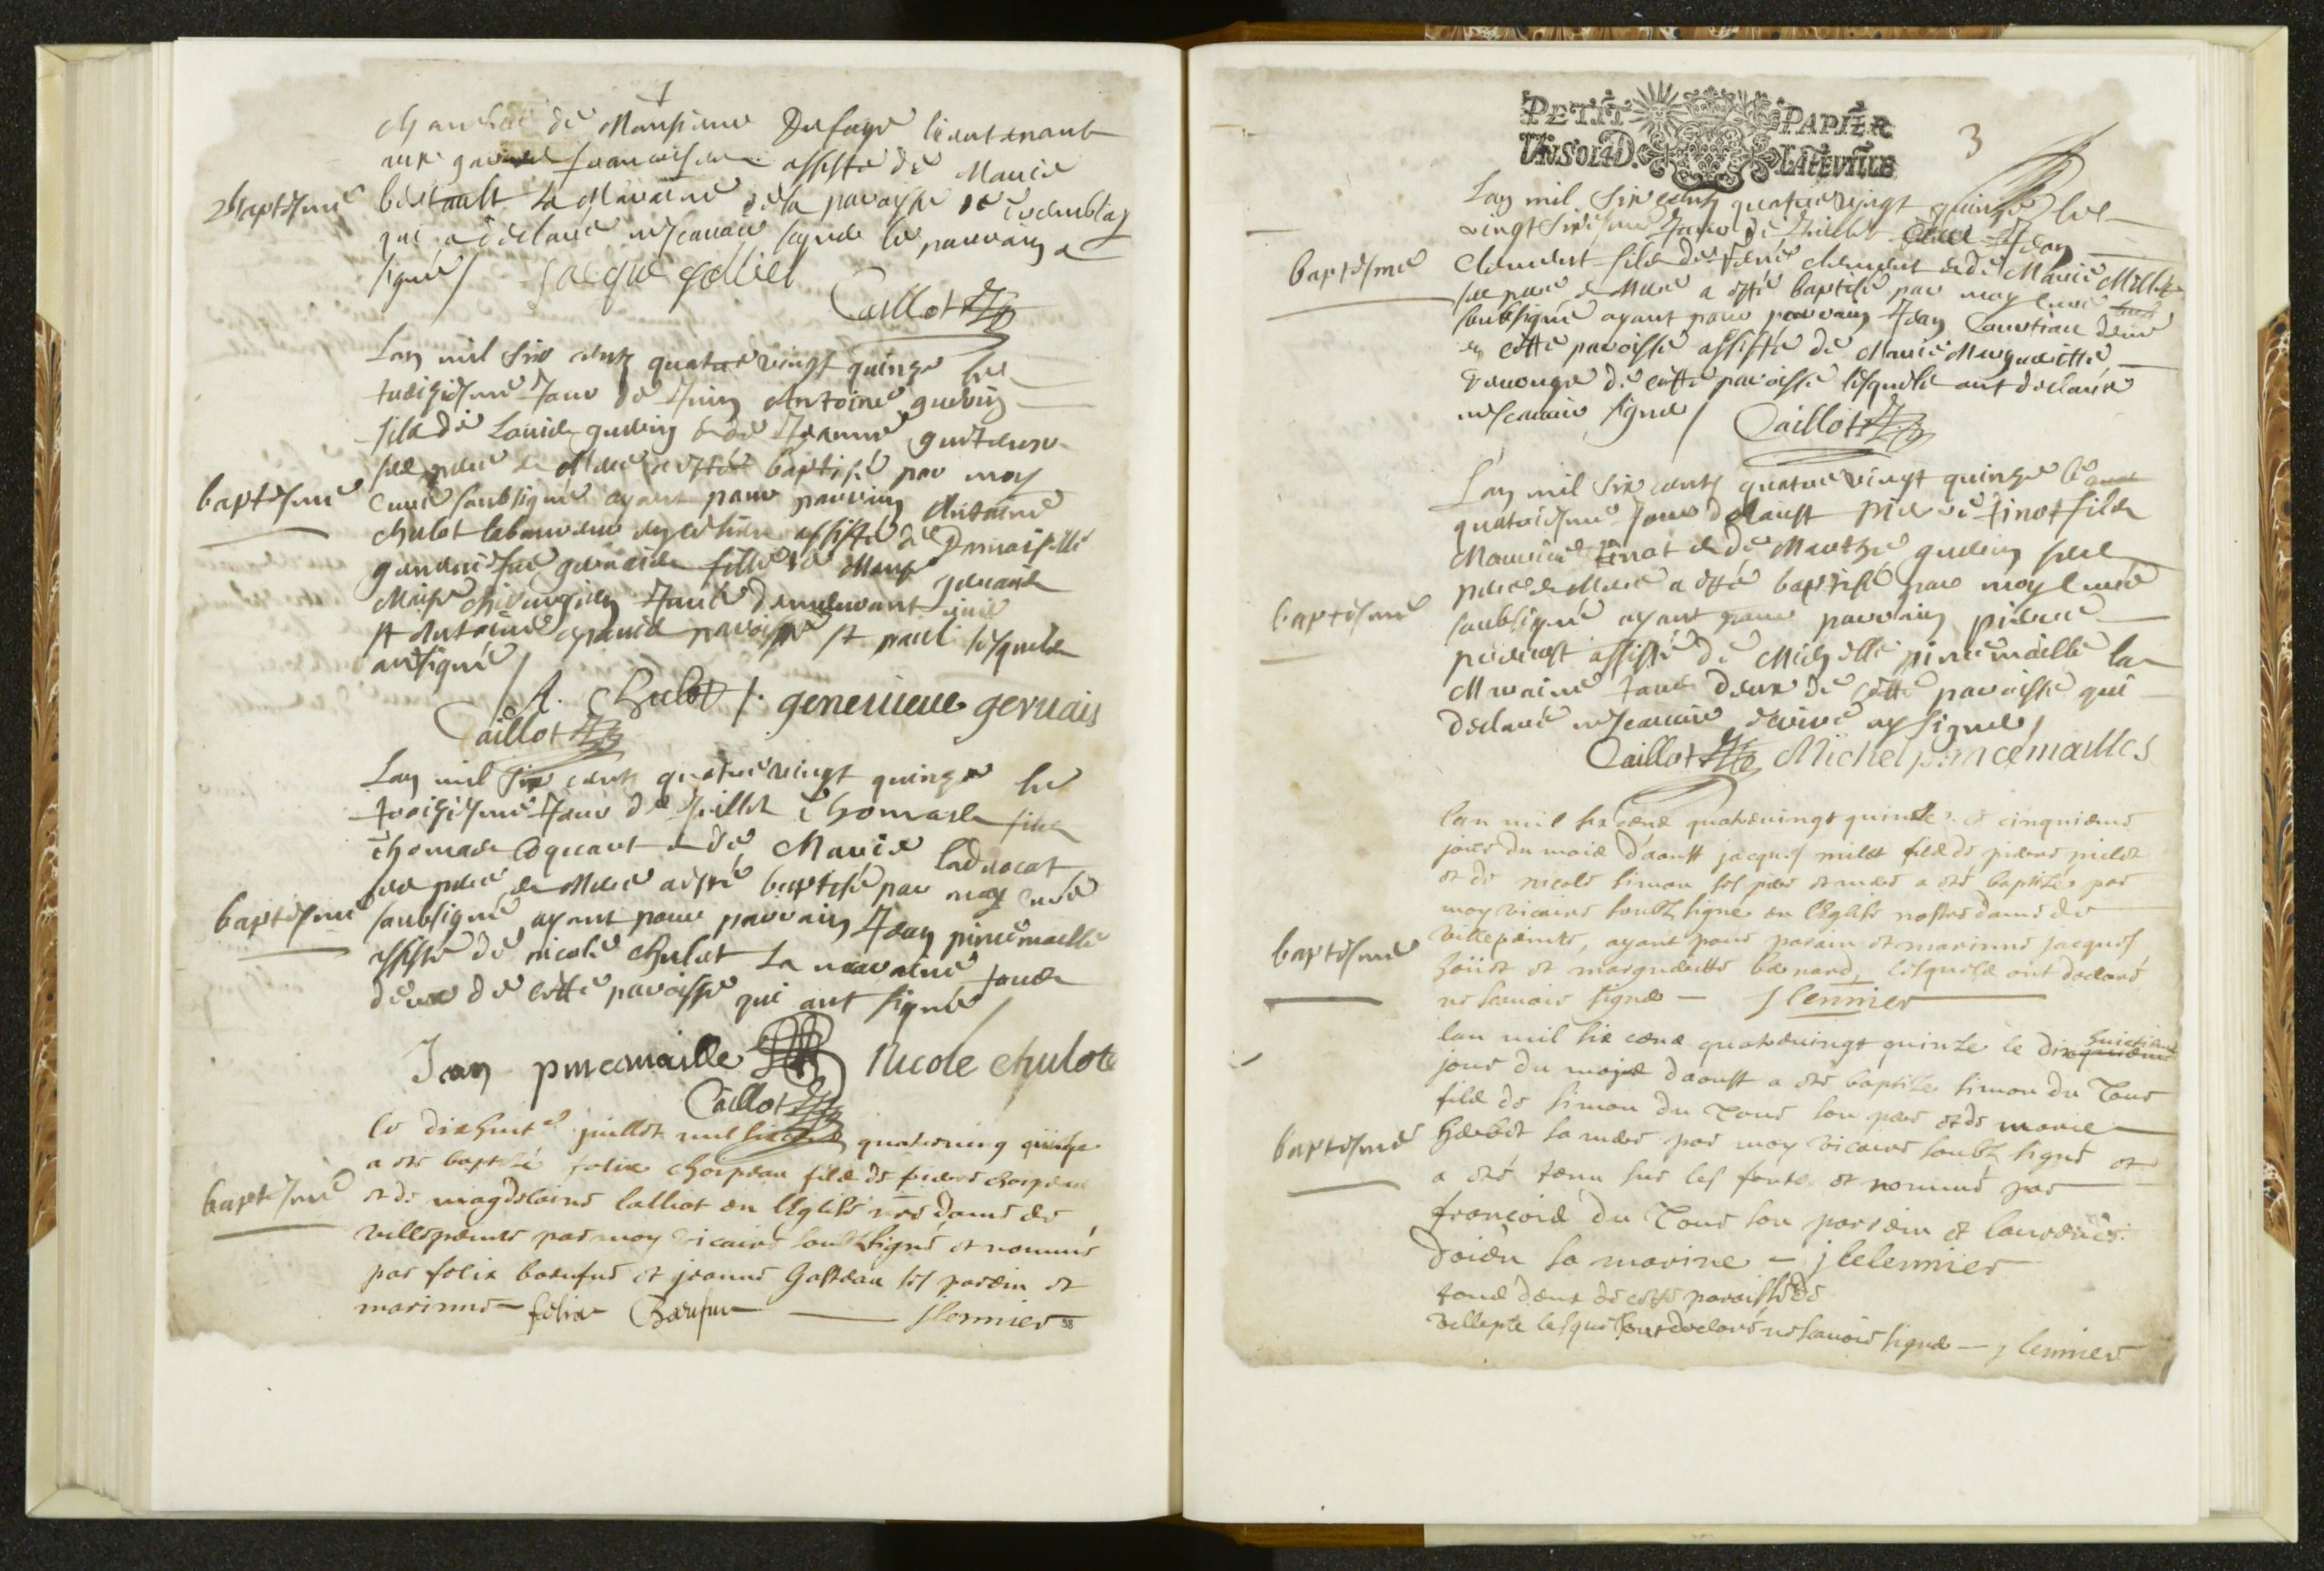 de Monsieur Dufaye lieutenant
aux gardes francoises assisté de Marie
la Maraine de la paroisse de Tremblay
baptesme
qui a declaré ne scavoir signer le parrain a
signé / Jacque
Caillot
Lan mil six cents quatre vingt quinze le
treiziesme Jour de Juin Antoine guerin
fils de Louis guerin & de Jeanne
ses pere & Mere a esté baptisé par moy
baptesme
Curé soubsigné ayant pour parrain Antoine
chulot laboureur assisté de Damoiselle
geneviefve gervais fille de Mons^r gervais
Maistre chirurgien Juré demeurant rue
St Antoine paroisse St paul lesquels
ont signé /
A. Chulot /. genevieue gervais
Caillot
Lan mil six cents quatre vingt quinze le
troisiesme Jour de Juillet Thomas fils
Thomas Coquart & de Marie Ladvocat
ses pere & Mere a esté baptisé par moy curé
baptesme
soubsigné, ayant pour parrain Jean pincemaille
assisté de nicole chulot La maraine tous
deux de cette paroisse qui ont signé /
Jean pincemaille Nicole chulote
Caillot
le dixhuit^e juillet mil six cens quatreving quinze
a este baptisé felix fils de pierre
baptesme
et de magdelaine lalliot en l'Eglise n^re dame de
villepeinte par moy vicaire soubsigné et nommé
par felix et jeanne Gasteau ses parein et
marinne - felix J lennier
58
PETIT PAPIER
VN SOL 4 D. LA FEVILLE
3
Lan mil six cents quatre vingt quinze le
vingt sixiesme Jour de Juillet Jean
baptesme
Clement fils de Clement & de Marie Millet
ses pere & Mere a esté baptisé par moy Curé
soubsigné ayant pour parrain Jean
de cette paroisse assisté de Marie Margueritte
de cette paroisse lesquels ont declaré
ne scavoir signer / Caillot
Lan mil six cents quatre vingt quinze le
quatriesme Jour d'Aoust pierre tinot fils de
Maurice tinot & de Marthe guerin ses
pere & Mere a esté baptisé par moy Curé
baptesme
soubsigné ayant pour parrain pierre
assisté de Michelle pincemaille la
Maraine tous deux de cette paroisse qui
declaré ne scavoir escrire ny signer /
Caillot Michel pincemailles
lan mil six cens quatrevingt quinze le cinquieme
jour du mois d'aoust jacques milet fils de pierre milet
et de nicole simon ses pere et mere a esté baptizé par
moy vicaire soubz signé en l'Eglise nostre dame de
baptesme
villepeinte, ayant pour parain et marinne jacques
et marguerite bernard, lesquels ont declaré
ne scavoir signer - J lennier
lan mil six cens quatrevingt quinze le dix huictieme
jour du mois daoust a esté baptizé simon du Tour
fils de simon du Tour son pere et de marie
baptesme
sa mere par moy vicaire soubz signé et
a esté tenu sur les fonts et nommé par
françois du Tour son parrein et laurence
Doien sa marine - j lelennier
tous deux de cette paroisse de
villepte lesquels ont declaré ne scavoir signer - J lennier